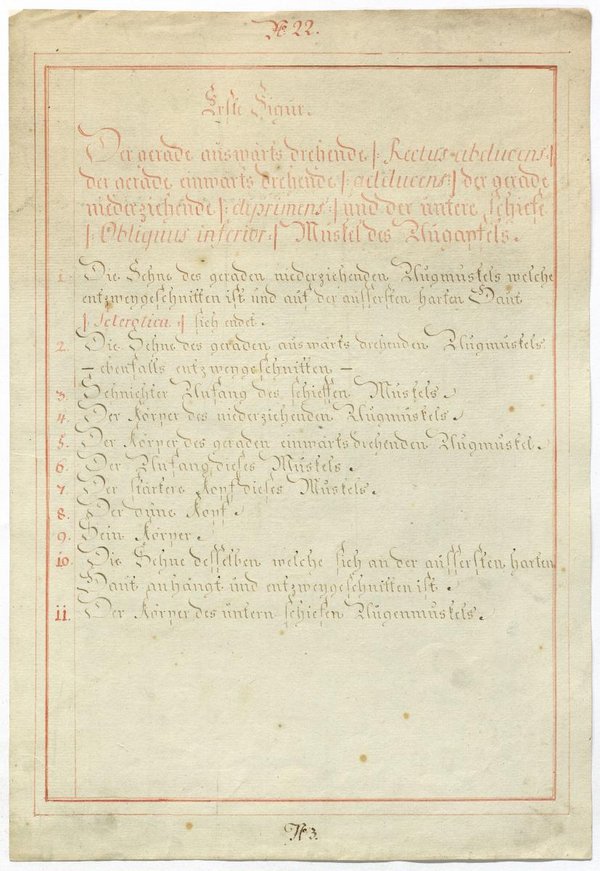 N 22.
Erste Figur.
Der gerade auswärts drehende |: Rectus abducens :|
der gerade einwärts drehende |: adducens :| der gerade
niederziehende |: diprimens :| und der untere schiefe
|: Obliquus inferior :| Muskel des Augapfels.
1. Die Sehne des geraden niederziehenden Augmuskels welche
entzweygeschnitten ist und auf der äussersten harten Haut
|: Sclerotica :| sich endet.
2. Die Sehne des geraden auswärts drehenden Augmuskels
— ebenfalls entzweygeschnitten —
3. Sehnichter Anfang des schiefen Muskels.
4. Der Körper des niederziehenden Augmuskels.
5. Der Körper des geraden einwärts drehenden Augmuskel.
6. Der Anfang dieses Muskels.
7. Der stärkere Kopf dieses Muskels.
8. Der düne Kopf.
9. Sein Körper.
10. Die Sehne desselben welche sich an der äussersten harten
Haut anhängt und entzweygeschnitten ist.
11. Der Körper des untern schiefen Augenmuskels.
N 3.